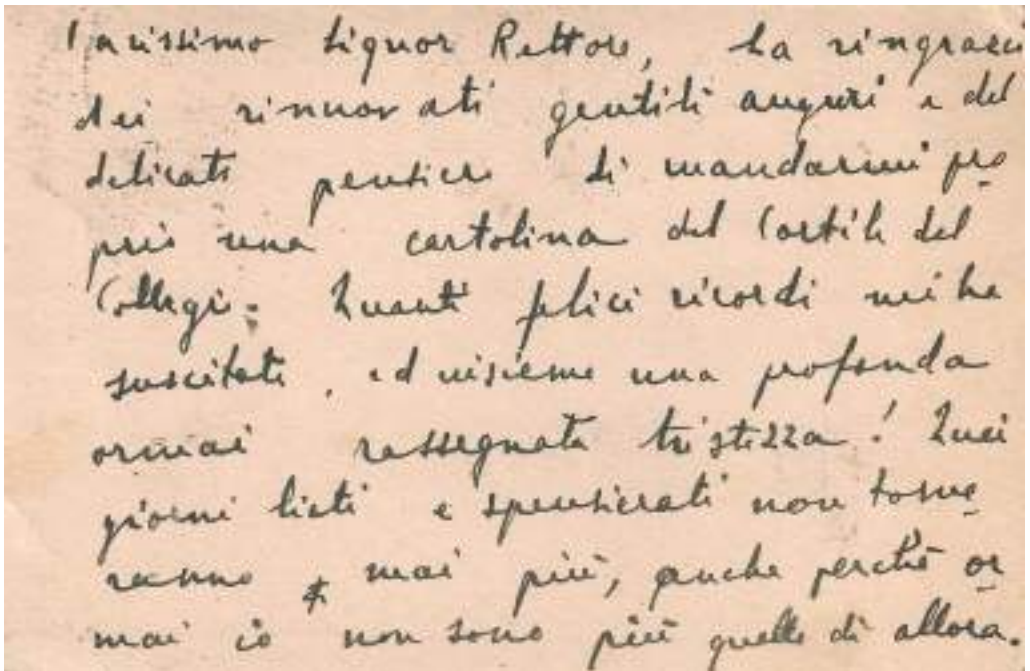 Carissimo Signor Rettore, La ringrazi
dei rinnovati gentili auguri e del
delicato pensiero di mandarmi pro
prio una cartolina del Cortile del
Collegio. Quanti felici ricordi mi ha
suscitati, ed insieme una profonda
ormai rassegnata tristezza! Quei
giorni lieti e spensierati non torne
ranno mai più, anche perchè or
mai io non sono più quello di allora.